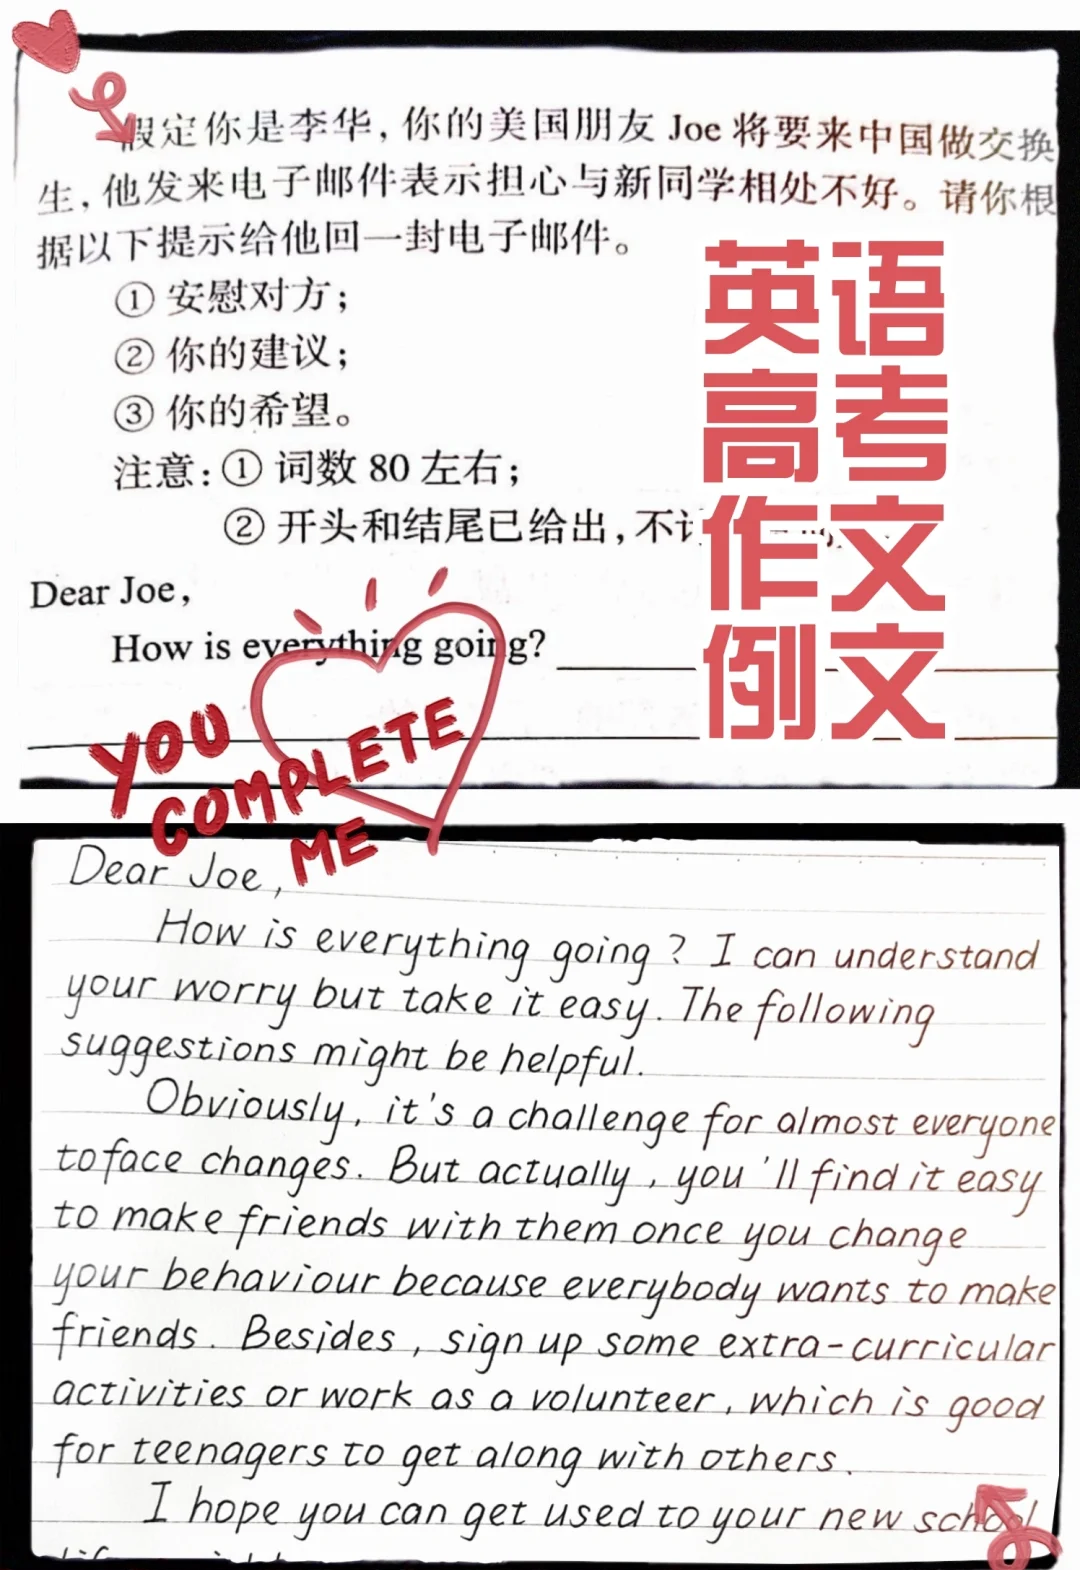 假定你是李华,你的美国朋友 Joe 将要来中国做交换
生,他发来电子邮件表示担心与新同学相处不好。请你根
据以下提示给他回一封电子邮件。
① 安慰对方;
② 你的建议;
③ 你的希望。
注意:① 词数 80 左右;
② 开头和结尾已给出,不
英语
高考
作文
例文
Dear Joe,
How is everything going?
YOU
COMPLETE
ME
Dear Joe,
How is everything going? I can understand
your worry but take it easy. The following
suggestions might be helpful.
Obviously, it's a challenge for almost everyone
to face changes. But actually, you'll find it easy
to make friends with them once you change
your behaviour because everybody wants to make
friends. Besides, sign up some extra-curricular
activities or work as a volunteer, which is good
for teenagers to get along with others.
I hope you can get used to your new school